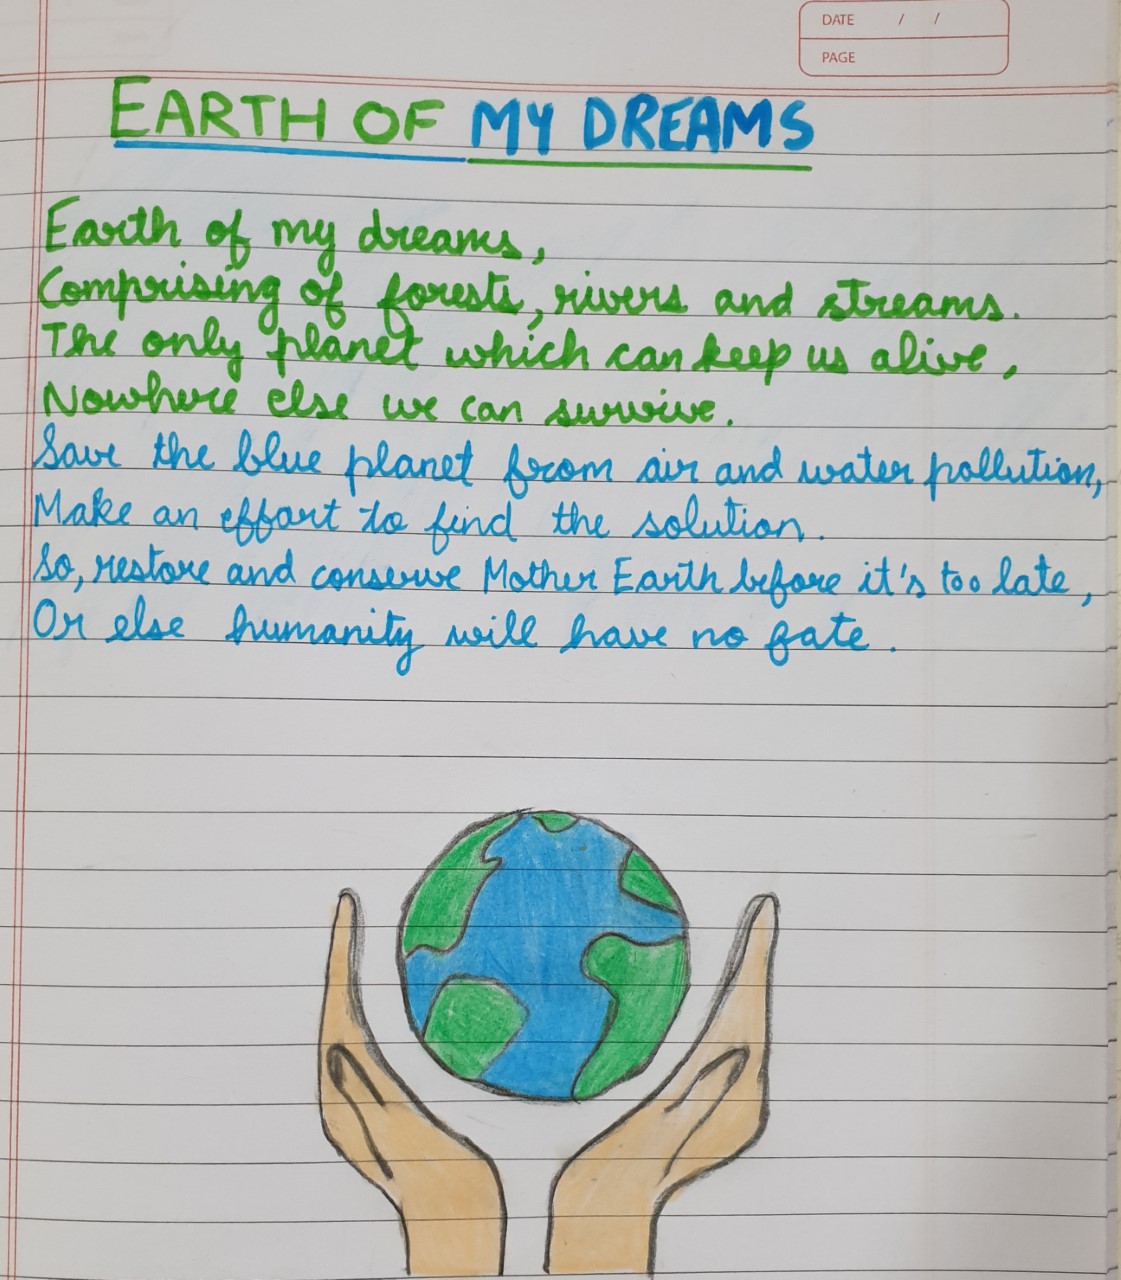 DATE / /
PAGE
EARTH OF MY DREAMS
Earth of my dreams,
Comprising of forests, rivers and streams.
The only planet which can keep us alive,
Nowhere else we can survive.
Save the blue planet from air and water pollution,
Make an effort to find the solution.
So, restore and conserve Mother Earth before it's too late,
Or else humanity will have no fate.